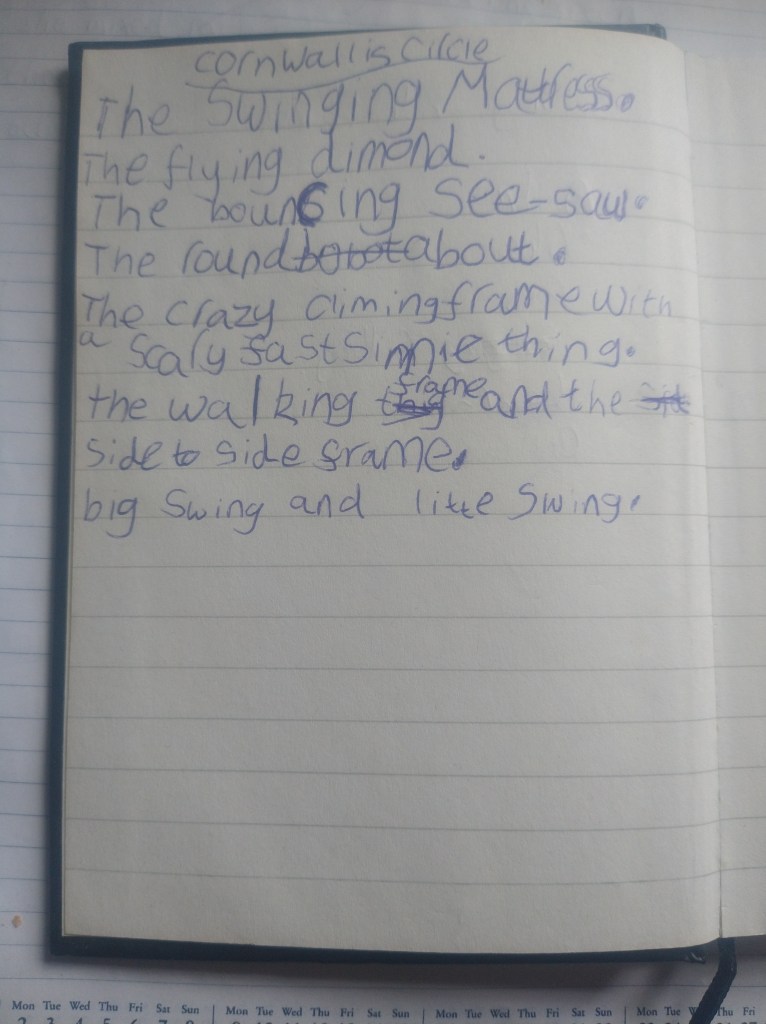 cornwallis Circle
The Swinging Mattress.
The flying dimond.
The bouncing see-saw.
The round about.
The crazy climing frame with
a scaly fast Sinnie thing.
the walking frame and the
side to side frame.
big Swing and little Swing.
Mon Tue Wed Thu Fri Sat Sun Mon Tue Wed Thu Fri Sat Sun Mon Tue Wed Thu Fri Sat Sun Mon Tue Thu Fri